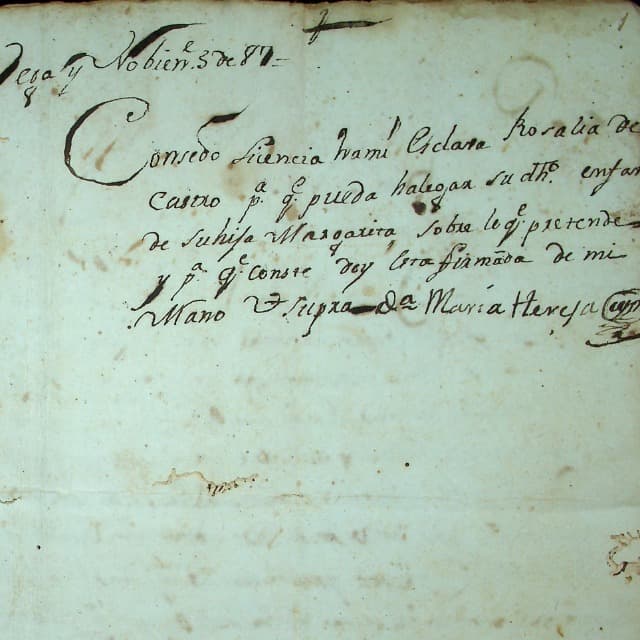 Vega y Nobiem.e 3 de 87
Consedo licencia á mi Esclava Rosalia de
Castro p.a q.e pueda halegar su dho. en fav
de su hija Margarita, sobre lo q.e pretende
y p.a q.e conste doy esta firmada de mi
Mano Ut supra D.a Maria Theresa